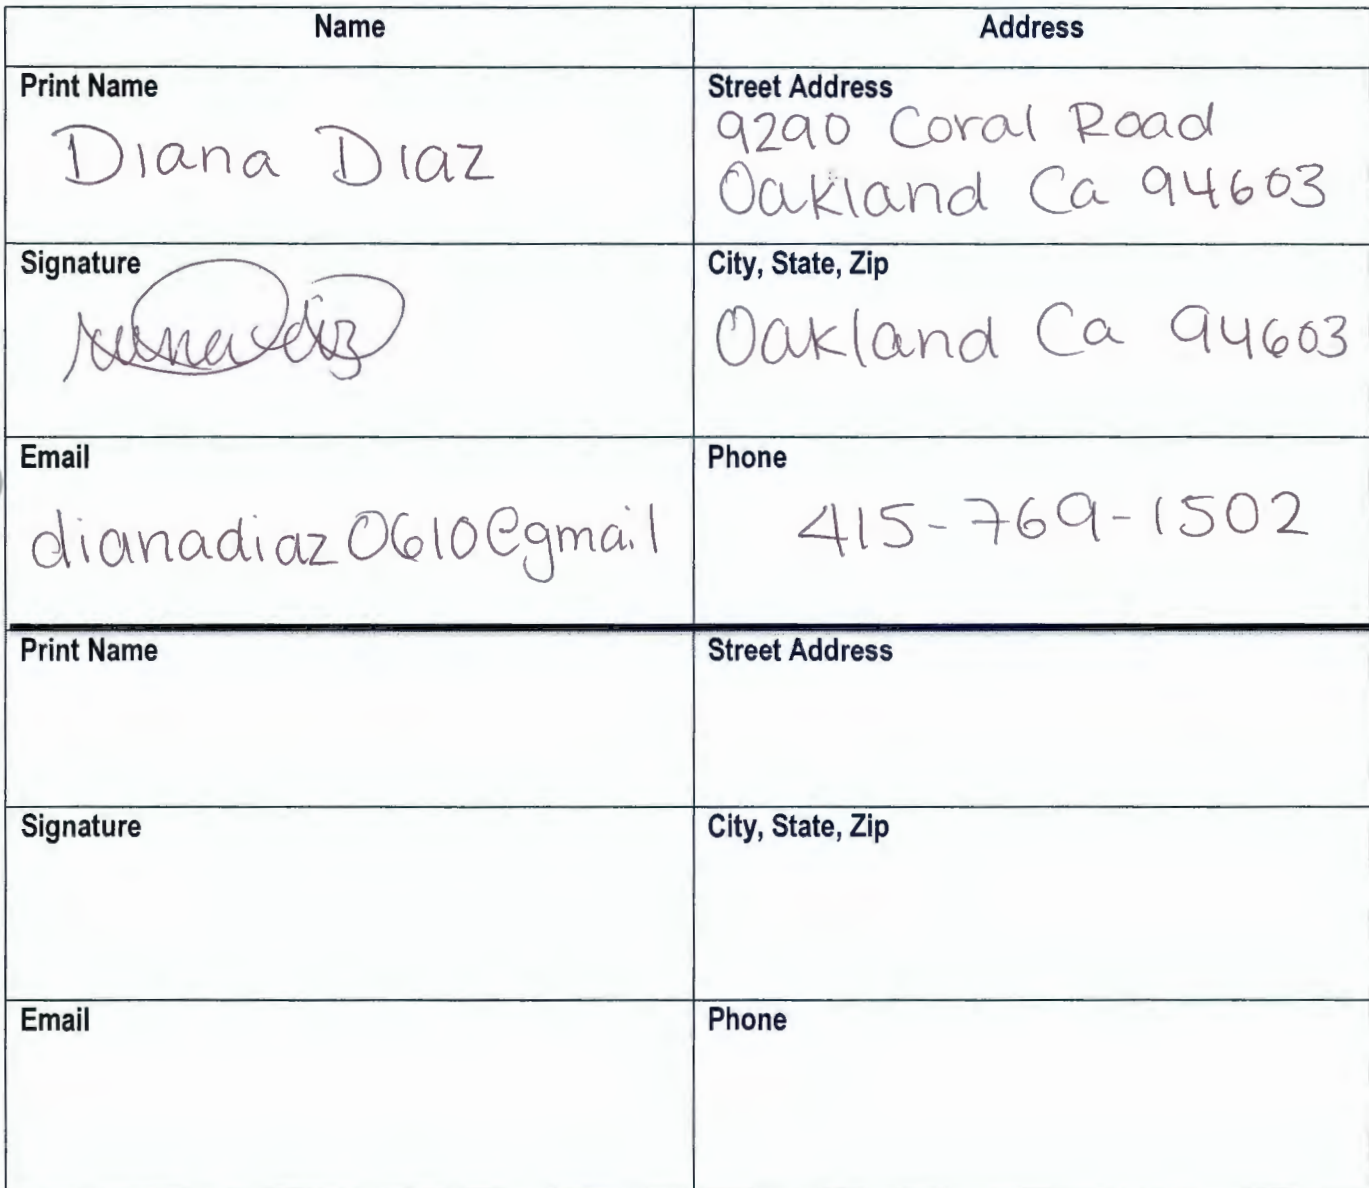 Name
Address
Print Name
Diana Diaz
Street Address
9290 Coral Road
Oakland Ca 94603
Signature
City, State, Zip
Oakland Ca 94603
Email
dianadiaz0610@gmail
Phone
415-769-1502
Print Name
Street Address
Signature
City, State, Zip
Email
Phone